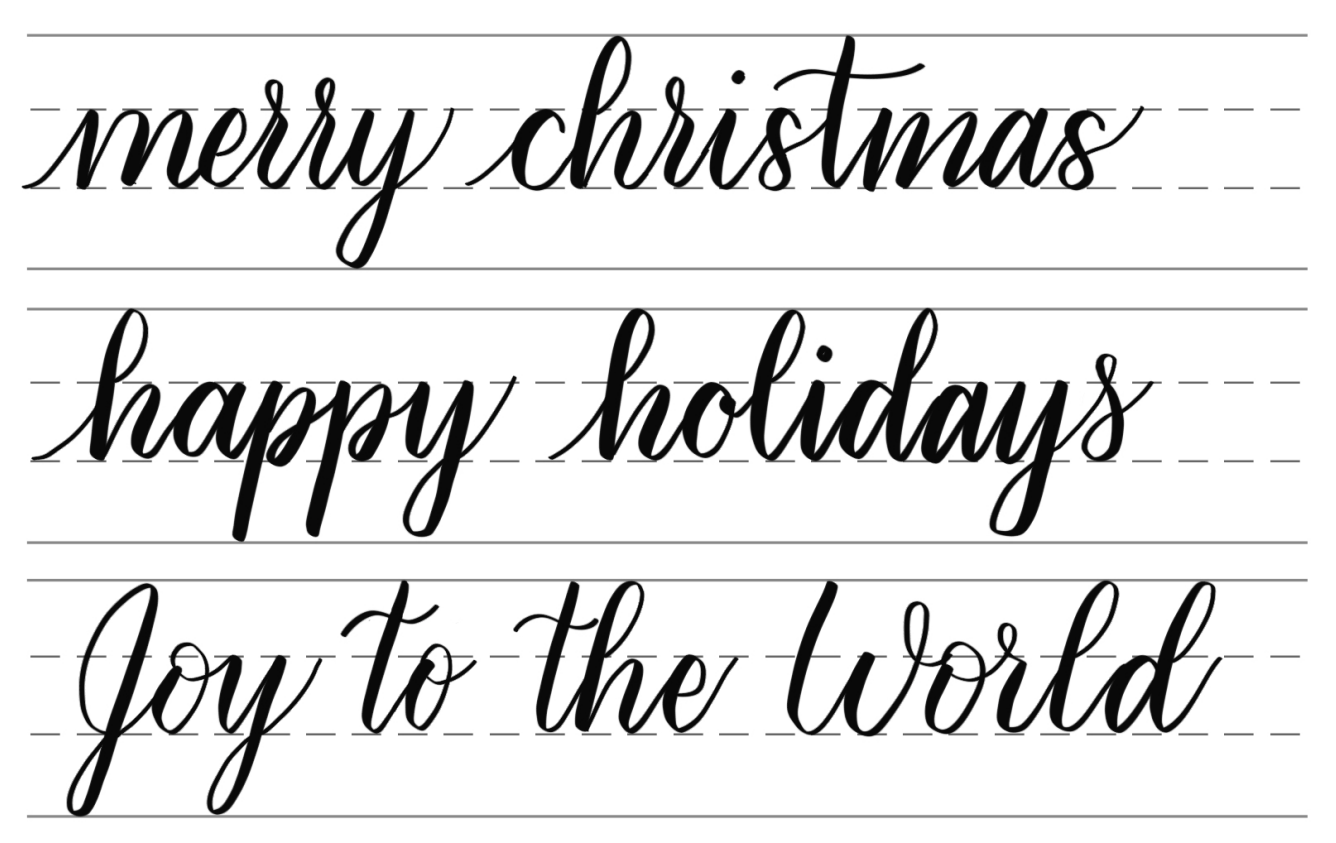 merry christmas
happy holidays
Joy to the World